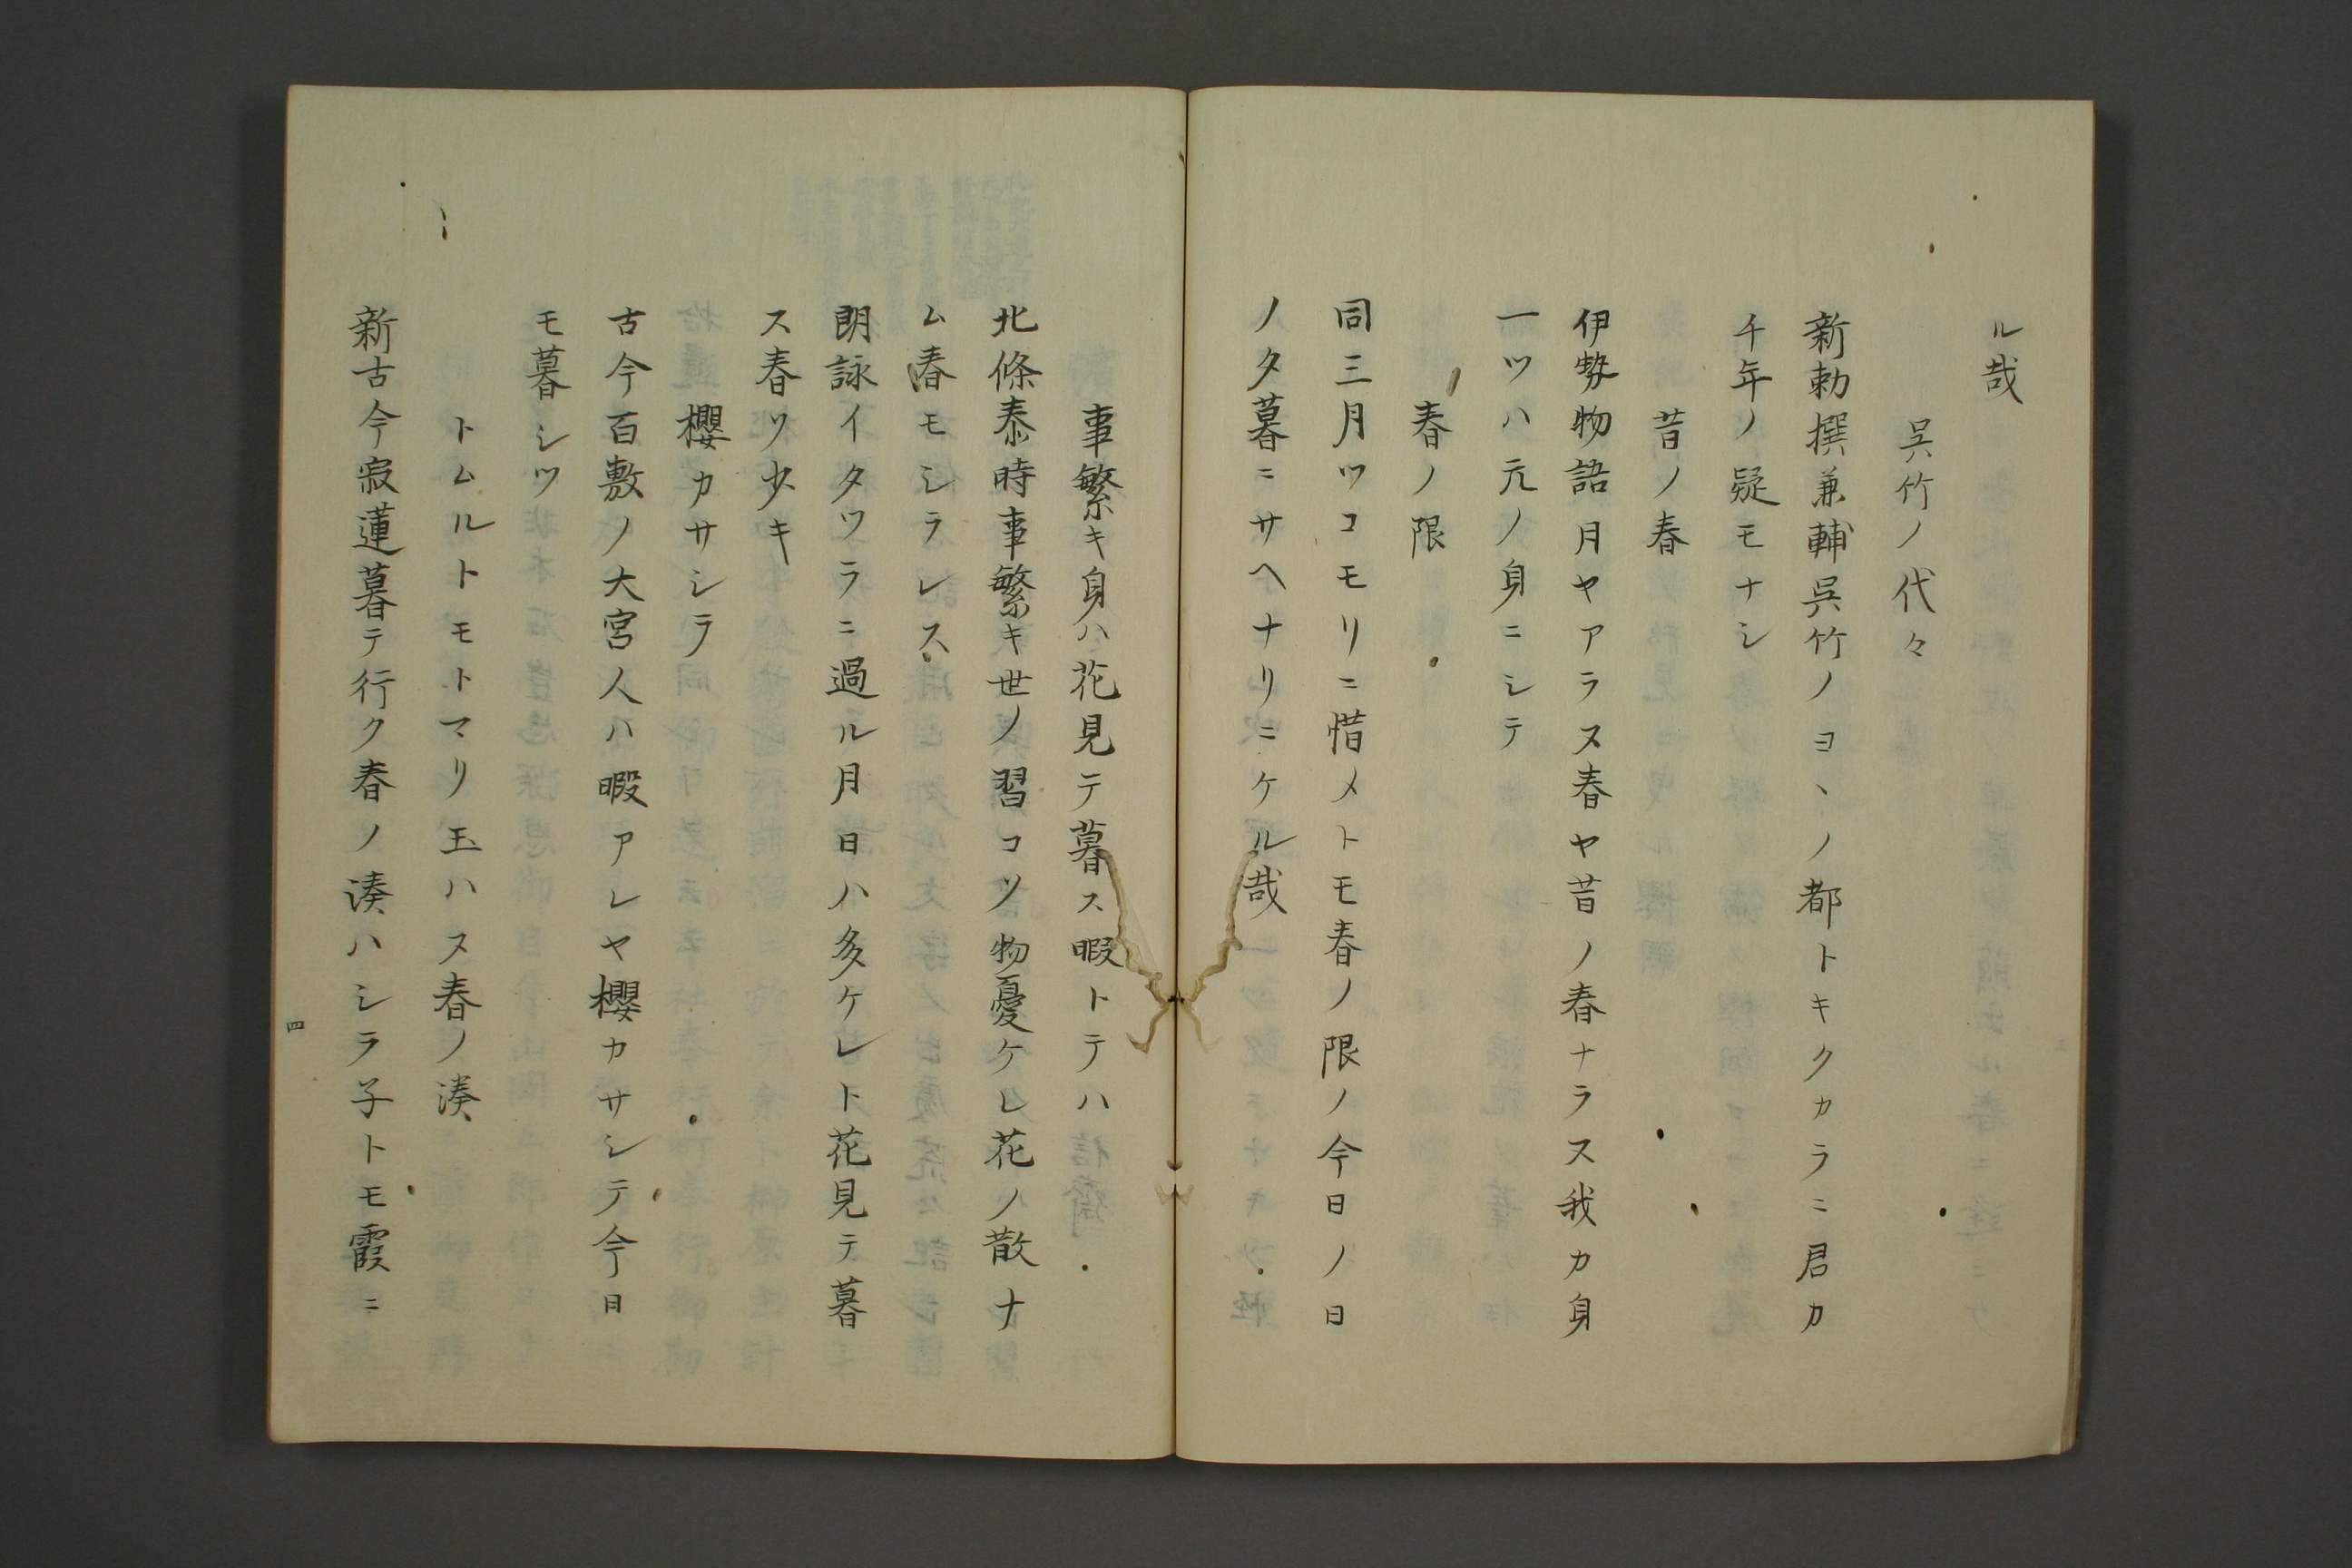 ル哉
呉竹ノ代々
新勅撰兼輔呉竹ノヨヽノ都トキクカラニ君カ
千年ノ疑モナシ
昔ノ春
伊勢物語月ヤアラヌ春ヤ昔ノ春ナラヌ我カ身
一ツハ元ノ身ニシテ
春ノ限
同三月ツコモリニ惜メトモ春ノ限ノ今日ノ日
ノタ暮ニサヘナリニケル哉
事繁キ身ハ花見テ暮ス暇トテハ
北條泰時事繁キ世ノ習コソ物憂ケレ花ノ散ナ
ム春モシラレス
朗詠イタツラニ過ル月日ハ多ケレト花見テ暮
ス春ソ少キ
櫻カサシラ
古今百敷ノ大宮人ハ暇アレヤ櫻カサシテ今日
モ暮シツ
トムルトモトマリ玉ハヌ春ノ湊
新古今寂蓮暮テ行ク春ノ湊ハシラ子トモ霞ニ
四